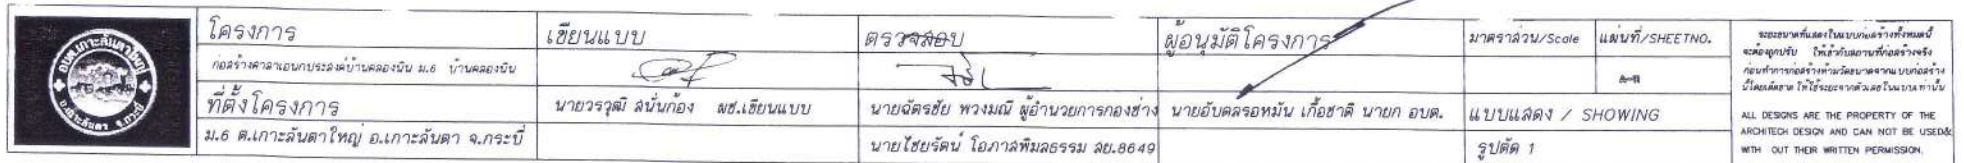 อบต.เกาะลันตาใหญ่
อ.เกาะลันตา จ.กระบี่
โครงการ
ก่อสร้างศาลาเอนกประสงค์บ้านคลองนิน ม.6 บ้านคลองนิน
ที่ตั้งโครงการ
ม.6 ต.เกาะลันตาใหญ่ อ.เกาะลันตา จ.กระบี่
เขียนแบบ
นายวรวุฒิ สนั่นก้อง ผช.เขียนแบบ
ตรวจสอบ
นายฉัตรชัย พวงมณี ผู้อำนวยการกองช่าง
นายไชยรัตน์ โอภาสพิมลธรรม สย.8649
ผู้อนุมัติโครงการ
นายอับดลรอหมัน เกื้อชาติ นายก อบต.
มาตราส่วน/Scale
แผ่นที่/SHEETNO.
แบบแสดง / SHOWING
รูปตัด 1
ระยะขนาดที่แสดงในแบบก่อสร้างทั้งหมดนี้
จะต้องถูกปรับ ให้เข้ากับสถานที่ก่อสร้างจริง
ก่อนทำการก่อสร้างห้ามวัดขนาดจากแบบก่อสร้าง
นี้โดยเด็ดขาด ให้ใช้ระยะจากตัวเลขในแบบเท่านั้น
ALL DESIGNS ARE THE PROPERTY OF THE
ARCHITECH DESIGN AND CAN NOT BE USED&
WITH OUT THEIR WRITTEN PERMISSION.